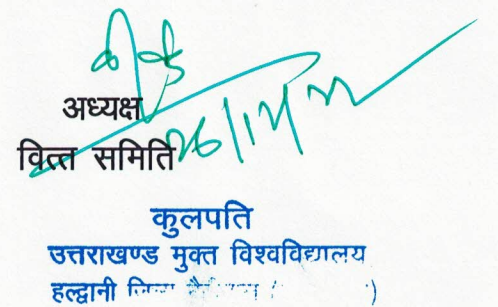 अध्यक्ष
वित्त समिति
कुलपति
उत्तराखण्ड मुक्त विश्वविद्यालय
हल्द्वानी